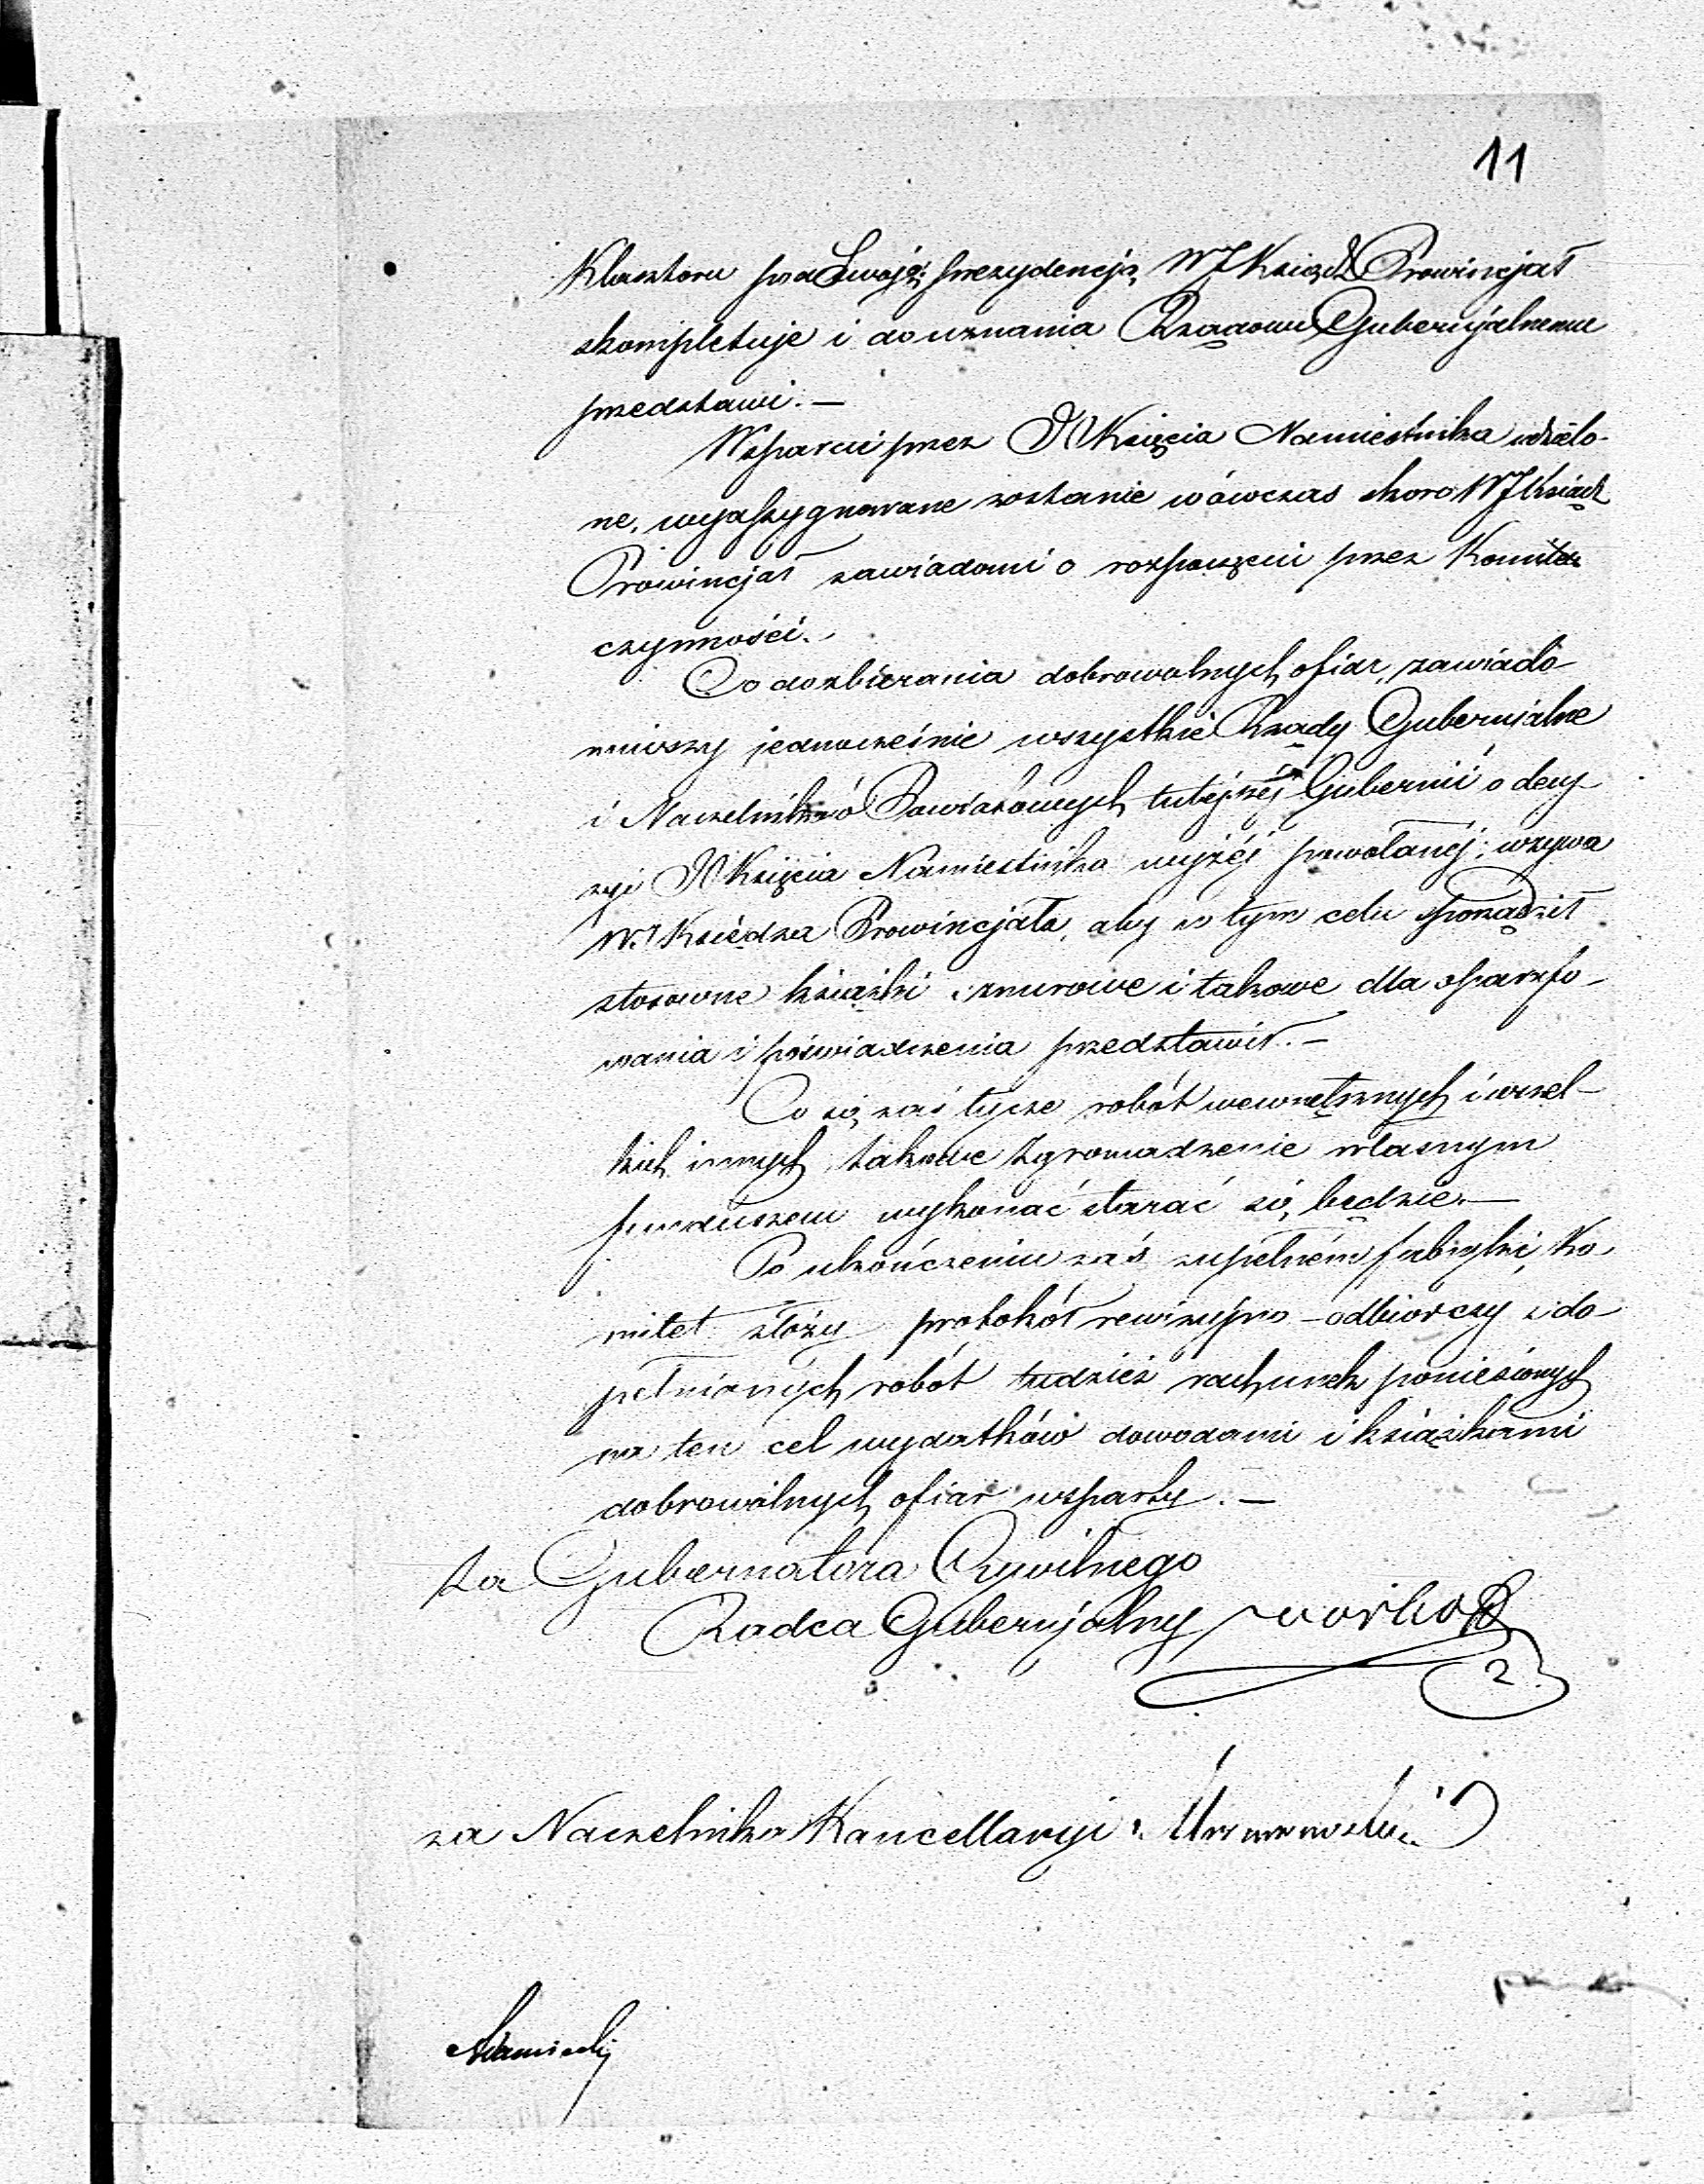 11
Klasztoru pod Swoją prezydencją WJKsiądz Prowincjał
skompletuje i do uznania Rządowi Gubernjalnemu
przedstawi. —
Wsparcie przez JO Księcia Namiestnika udzielo-
ne, wyassygnowane zostanie wówczas skoro WJKsiądz
Prowincjał zawiadomi o rozpoczęciu przez Komitet
czynności.
Co do zbierania dobrowolnych ofiar, zawiado-
miwszy jednocześnie wszystkie Rządy Gubernjalne
i Naczelników Powiatowych tutejszej Gubernii o decy-
zyi JO Księcia Namiestnika wyżéj powołanéj; wzywa
WJ Księdza Prowincjała, aby w tym celu sporządził
stosowne książki sznurowe i takowe dla oparafo-
wania i poświadczenia przedstawił. —
Co się zaś tycze robót wewnętrznych i wszel-
kich innych, takowe Zgromadzenie własnym
funduszem wykonać starać się będzie. —
Po ukończeniu zaś zupełném fabryki, Ko-
mitet złoży protokół rewizyjno-odbiorczy z do-
pełnionych robót tudzież rachunek poniesionych
na ten cel wydatków dowodami i książkami
dobrowolnych ofiar wsparty. —
Za Gubernatora Cywilnego
Radca Gubernjalny
za Naczelnika Kancellaryi